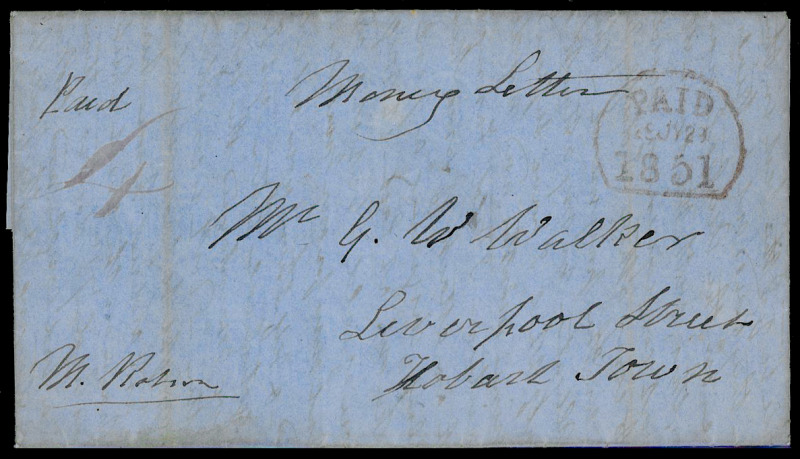 Paid
Money Letter
PAID
JY 21
1851
4
Mr G. W Walker
Liverpool Street
Hobart Town
M. Robson